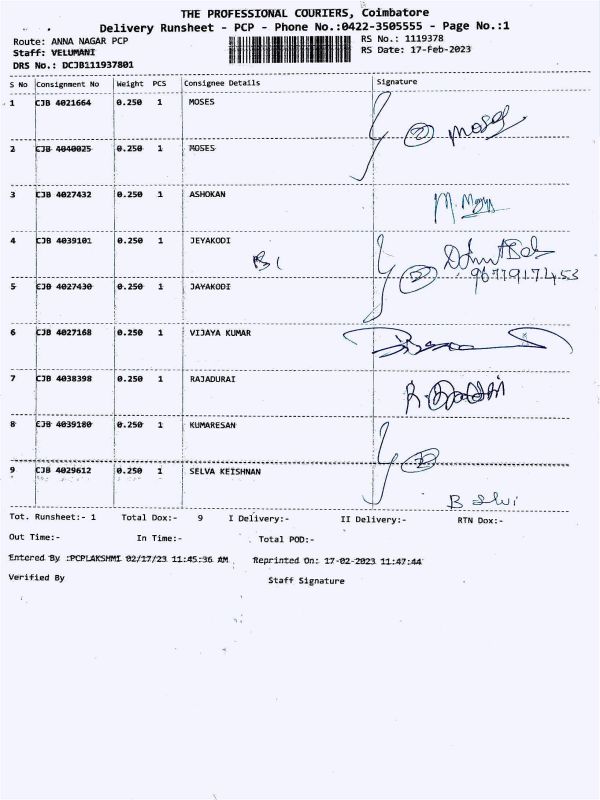 THE PROFESSIONAL COURIERS, Coimbatore
Delivery Runsheet - PCP - Phone No.:0422-3505555 - Page No.:1
Route: ANNA NAGAR PCP RS No.: 1119378
Staff: VELUMANI RS Date: 17-Feb-2023
DRS No.: DCJB111937801
S No Consignment No Weight PCS Consignee Details Signature
1 CJB 4021664 0.250 1 MOSES
② Moses
2 CJB 4040025 0.250 1 MOSES
3 CJB 4027432 0.250 1 ASHOKAN
4 CJB 4039101 0.250 1 JEYAKODI
②
5 CJB 4027430 0.250 1 JAYAKODI
6 CJB 4027168 0.250 1 VIJAYA KUMAR
7 CJB 4038398 0.250 1 RAJADURAI
8 CJB 4039180 0.250 1 KUMARESAN
②
9 CJB 4029612 0.250 1 SELVA KEISHNAN
Tot. Runsheet:- 1 Total Dox:- 9 I Delivery:- II Delivery:- RTN Dox:-
Out Time:- In Time:- Total POD:-
Entered By :PCPLAKSHMI 02/17/23 11:45:36 AM Reprinted On: 17-02-2023 11:47:44
Verified By Staff Signature